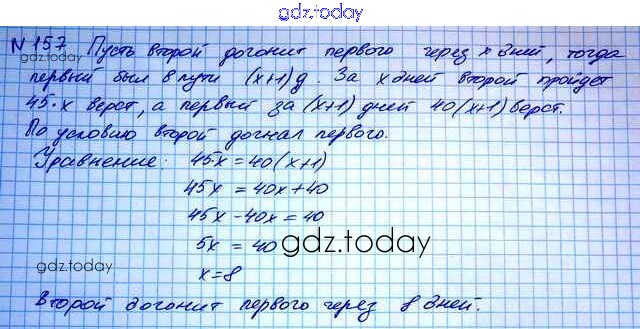 gdz.today
N 157 Пусть второй догонит первого через x дней, тогда
gdz.today
первый был в пути (x+1) д. За x дней второй пройдет
45·x верст, а первый за (x+1) дней 40(x+1) верст.
По условию второй догнал первого.
Уравнение: 45x = 40(x+1)
45x = 40x+40
45x-40x = 40
5x = 40
gdz.today
gdz.today
x=8
Второй догонит первого через 8 дней.